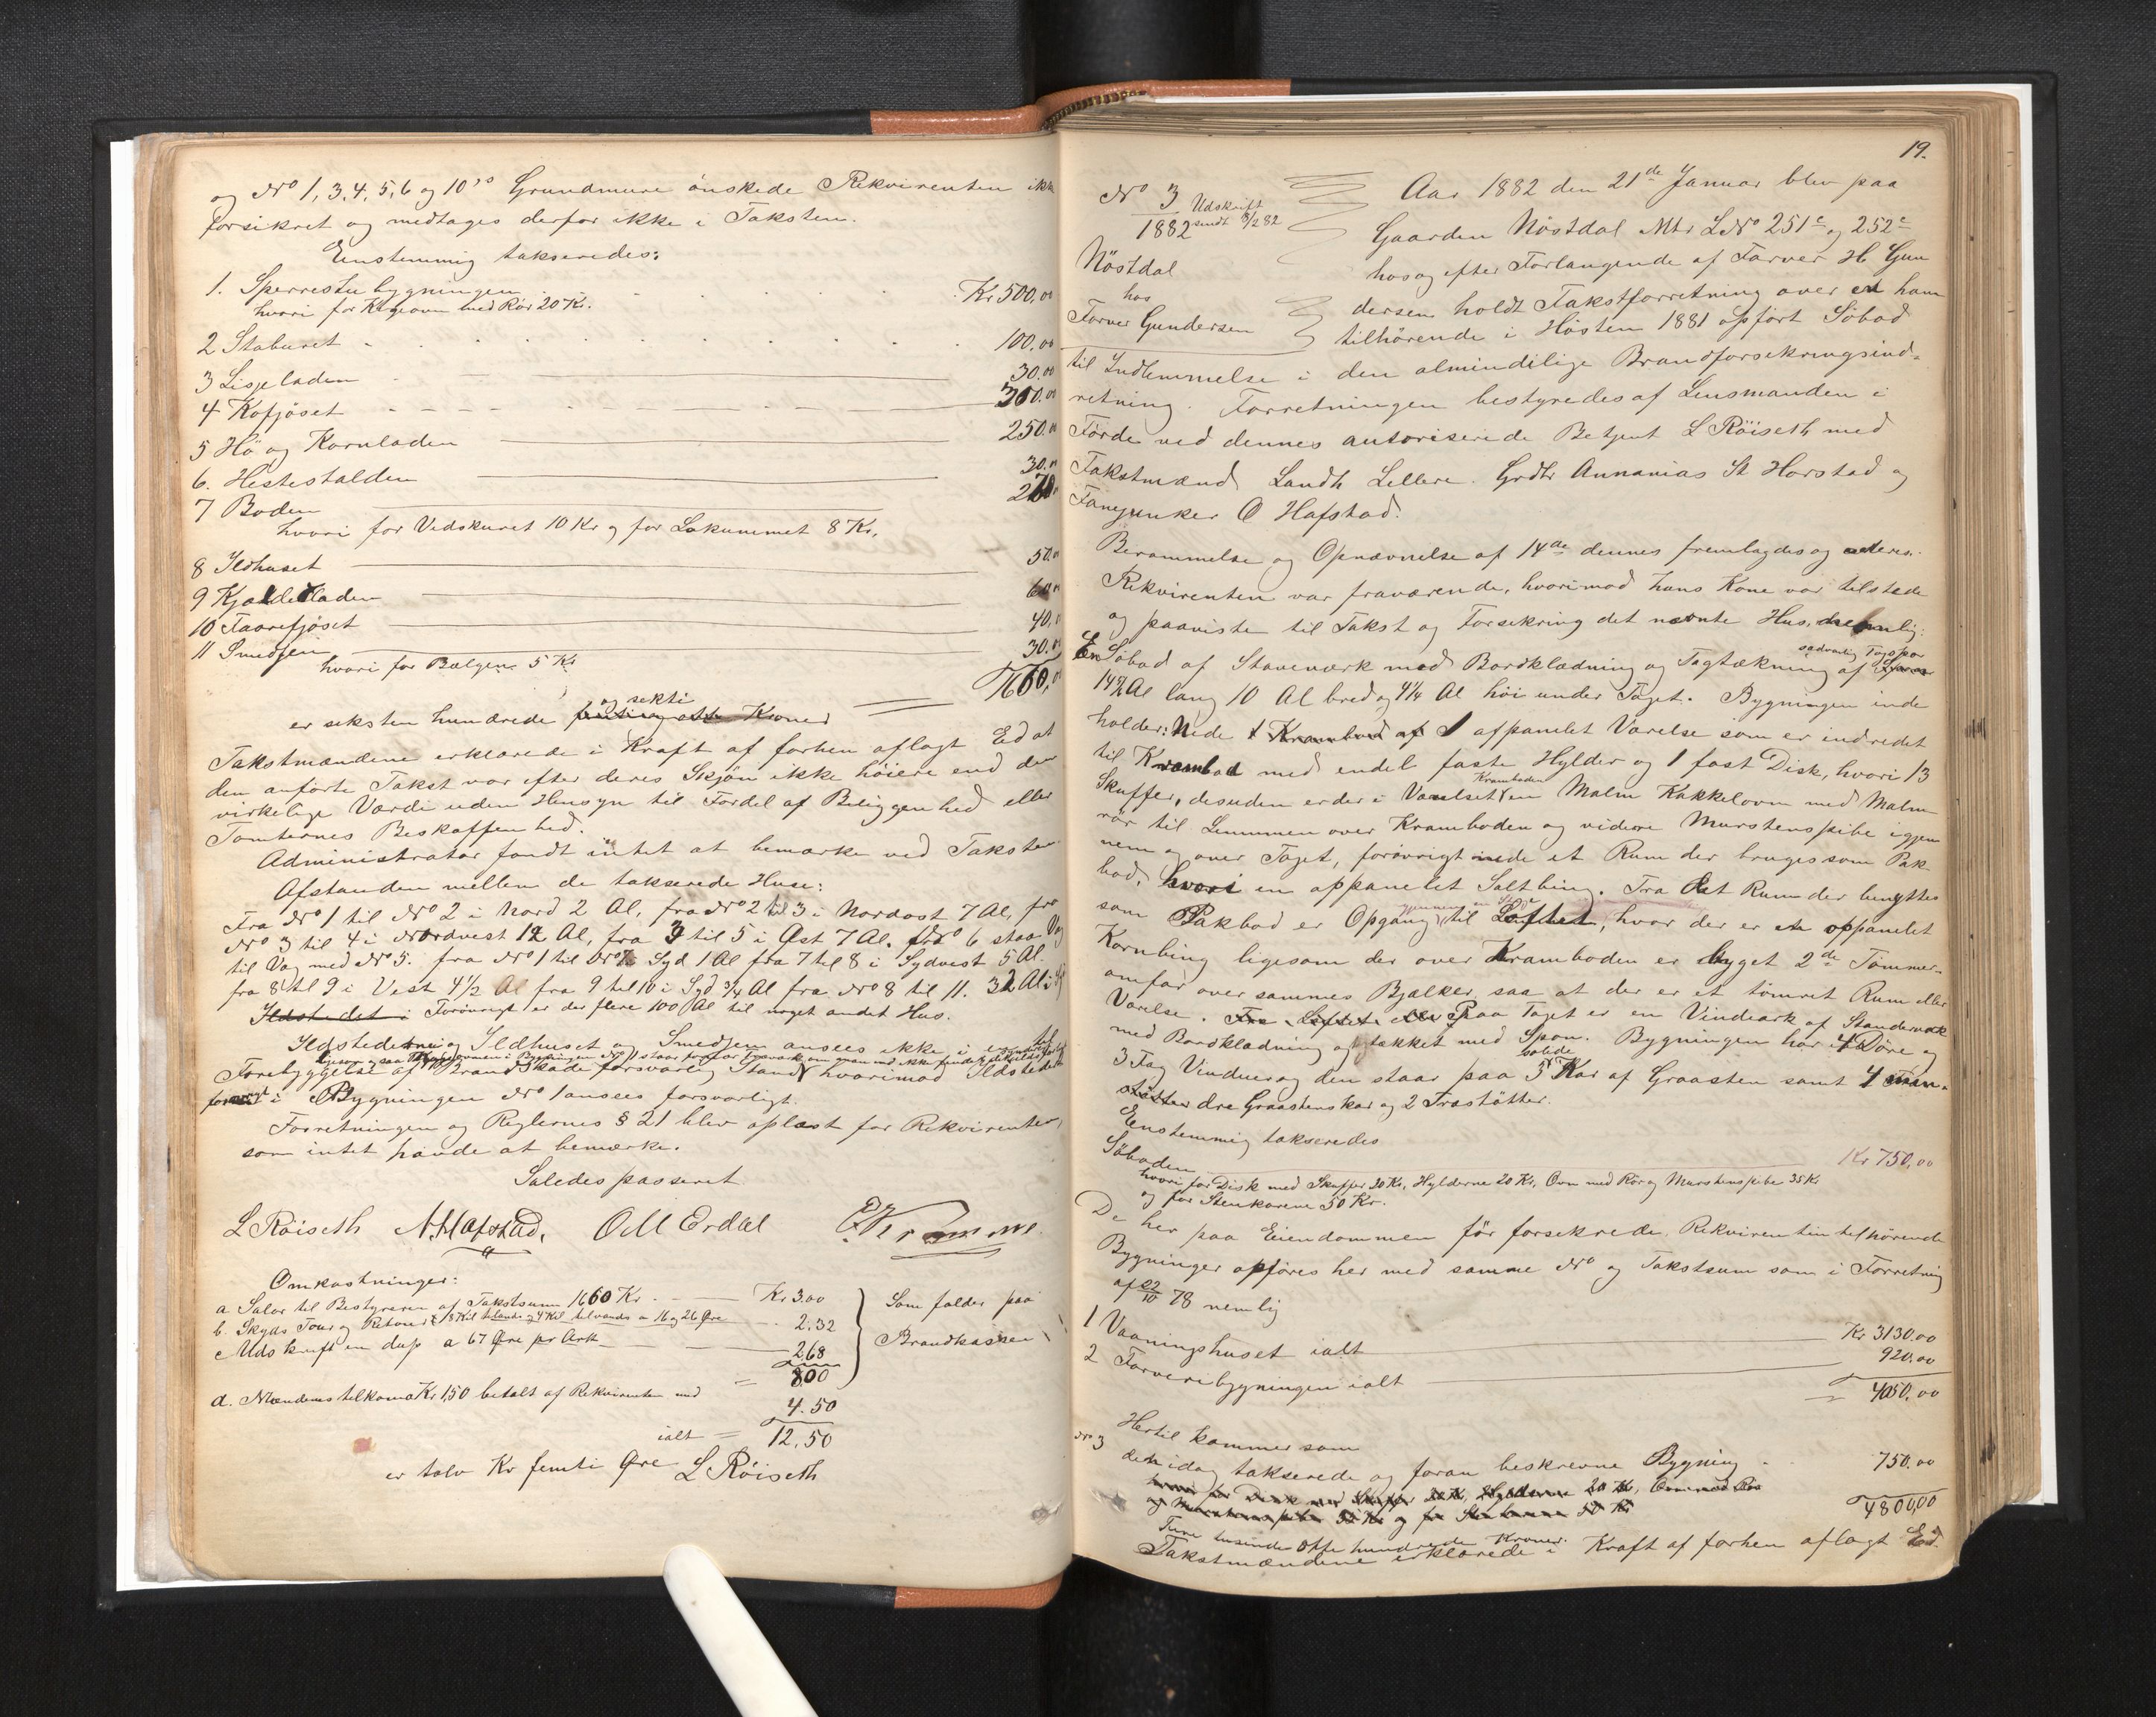 og No 1, 3, 4, 5, 6 og 10's Grundmure ønskede Rekvirenten ikke
forsikret og medtages derfor ikke i Taksten.
Enstemmig takseredes:
1. Sperrestubygningen Kr 500,00
hvori for Kogeovn med Rør 20 Kr.
2 Staburet 100.00
3 Lisjeladen 30.00
4 Kofjøset 300.00
5 Hø og Kornladen 250.00
6. Hestestalden 30.00
7 Boden
hvori for Vedskuret 10 Kr og for Lokummet 8 Kr.
8 Ildhuset 50.00
9 Kjaldeladen 60.00
10 Faarefjøset 40.00
11 Smedjen 30.00
hvori for Bælgen 5 Kr
1660,00
er seksten hundrede og seksti Kroner
Takstmændene erklærede i Kraft af forhen aflagt Ed at
den anførte Takst var efter deres Skjøn ikke høiere end den
virkelige Værdi uden Hensyn til Fordel af Beliggenhed eller
Tomternes Beskaffenhed.
Administrator fandt intet at bemærke ved Taksten
Afstanden mellem de takserede Huse:
Fra No 1 til No 2 i Nord 2 Al, fra No 2 til 3 i Nordost 7 Al, fra
No 3 til 4 i Nordvest 12 Al, fra 3 til 5 i Øst 7 Al. No 6 staar Væg
til Væg med No 5. fra No 1 til No 7 Syd 1 Al fra 7 til 8 i Sydvest 5 Al.
fra 8 til 9 i Vest 4 1/2 Al fra 9 til 10 i Syd 3/4 Al fra No 8 til 11. 32 Al i
Ildstedet i Forøvrigt er der flere 100 Al til noget andet Hus.
Ildstederne i Ildhuset og Smedjen ansees ikke i
Forebyggelse af Brandskade forsvarlig Stand hvorimod Ildstedet
i Bygningen No 1 ansees forsvarligt.
Forretningen og Reglernes § 21 blev oplæst for Rekvirenten,
som intet havde at bemærke.
Saledes passeret
L Røiseth N. Hafstad, O M Erdal
Omkostninger:
a Salær til Bestyreren af Takstsum 1660 Kr Kr 3.00
b. Skyds Tour og Retour 18 Kil tillands og 4 Kil tilvands a 16 og 26 Øre 2.32
c Udskrift en dup a 67 Øre pr Ark 2,68
= 800
Som falder paa
Brandkassen
d. Mændenes tilkomme Kr 1,50 betalt af Rekvirenten med 4.50
ialt = 12,50
er tolv Kr femti Øre L Røiseth
19.
No 3
1882
Udskrift
sendt 8/2 82
Nøstdal
hos
Farver Gundersen
Aar 1882 den 21de Januar blev paa
Gaarden Nøstdal Mtr LNo 251c og 252c
hos og efter Forlangende af Farver H Gun
dersen holdt Takstforretning over en ham
tilhørende i Høsten 1881 opført Søbod
til Indlemmelse i den almindelige Brandforsekringsind-
retning. Forretningen bestyredes af Lensmanden i
Førde ved dennes autoriserede Betjent L Røiseth med
Takstmænd Landh Lellere. Grdbr Annanias St Horstad og
Fanejunker O Hafstad.
Berammelse og Opnævnelse af 14de dennes fremlagdes og
Rekvirenten var fraværende, hvorimod hans Kone var tilstede
og paaviste til Takst og Forsekring det nævnte Hus, nemlig:
En Søbod af Stavværk med Bordklædning og Tagtækning af sædvanlig Tagspon
14 1/2 Al lang 10 Al bred og 4 1/4 Al høi under Taget. Bygningen inde
holder: Nede 1 Krambod af 1 afpanelet Værelse som er indredet
til Krambod med endel faste Hylder og 1 fast Disk, hvori 13
Skuffer, desuden er der i Kramboden en Malm Kakkelovn med Malm
rør til Lemmen over Kramboden og videre Murstenspibe igjen
nem og over Taget, forøvrigt nede et Rum der bruges som Pak
bod, hvori en oppanelet Saltbing. Fra det Rum der benyttes
som Pakbod er Opgang til Loftet, hvor der er en oppanelet
Kornbing ligesom der over Kramboden er bygget 2de Tømmer-
omfar over sammes Bjælker, saa at der er et tømret Rum eller
Værelse. Fra Loftet Paa Taget er en Vindeark af Standerværk
med Bordklædning og tækket med Spon. Bygningen har 4 Døre og
3 Fag Vinduer og den staar paa 3 solide Kar af Graasten samt 4 min-
dre Graastenskar og 2 Træstøtter.
Enstemmig takseredes
Søboden Kr 750,00
hvori for Disk med Skuffer 30 Kr, Hylderne 20 Kr, Ovn med Rør og Murstenspibe 35 Kr.
og for Stenkarene 50 Kr.
De her paa Eiendommen før forsekrede, Rekvirenten tilhørende
Bygninger opføres her med samme No og Takstsum som i Forretning
af 22/10 78 nemlig
1 Vaaningshuset ialt Kr 3130.00
2 Farveribygningen ialt 920.00
= 4050,00
Hertil kommer som
No 3 den idag takserede og foran beskrevne Bygning 750.00
hvori for Disk med Skuffer 30 Kr, Hylderne 20 Kr, Ovn med Rør
og Murstenspibe 35 Kr og for Stenkarene 50 Kr
4800,00
Fire tusinde Otte hundrede Kroner.
Takstmændene erklærede i Kraft af forhen aflagt Ed.